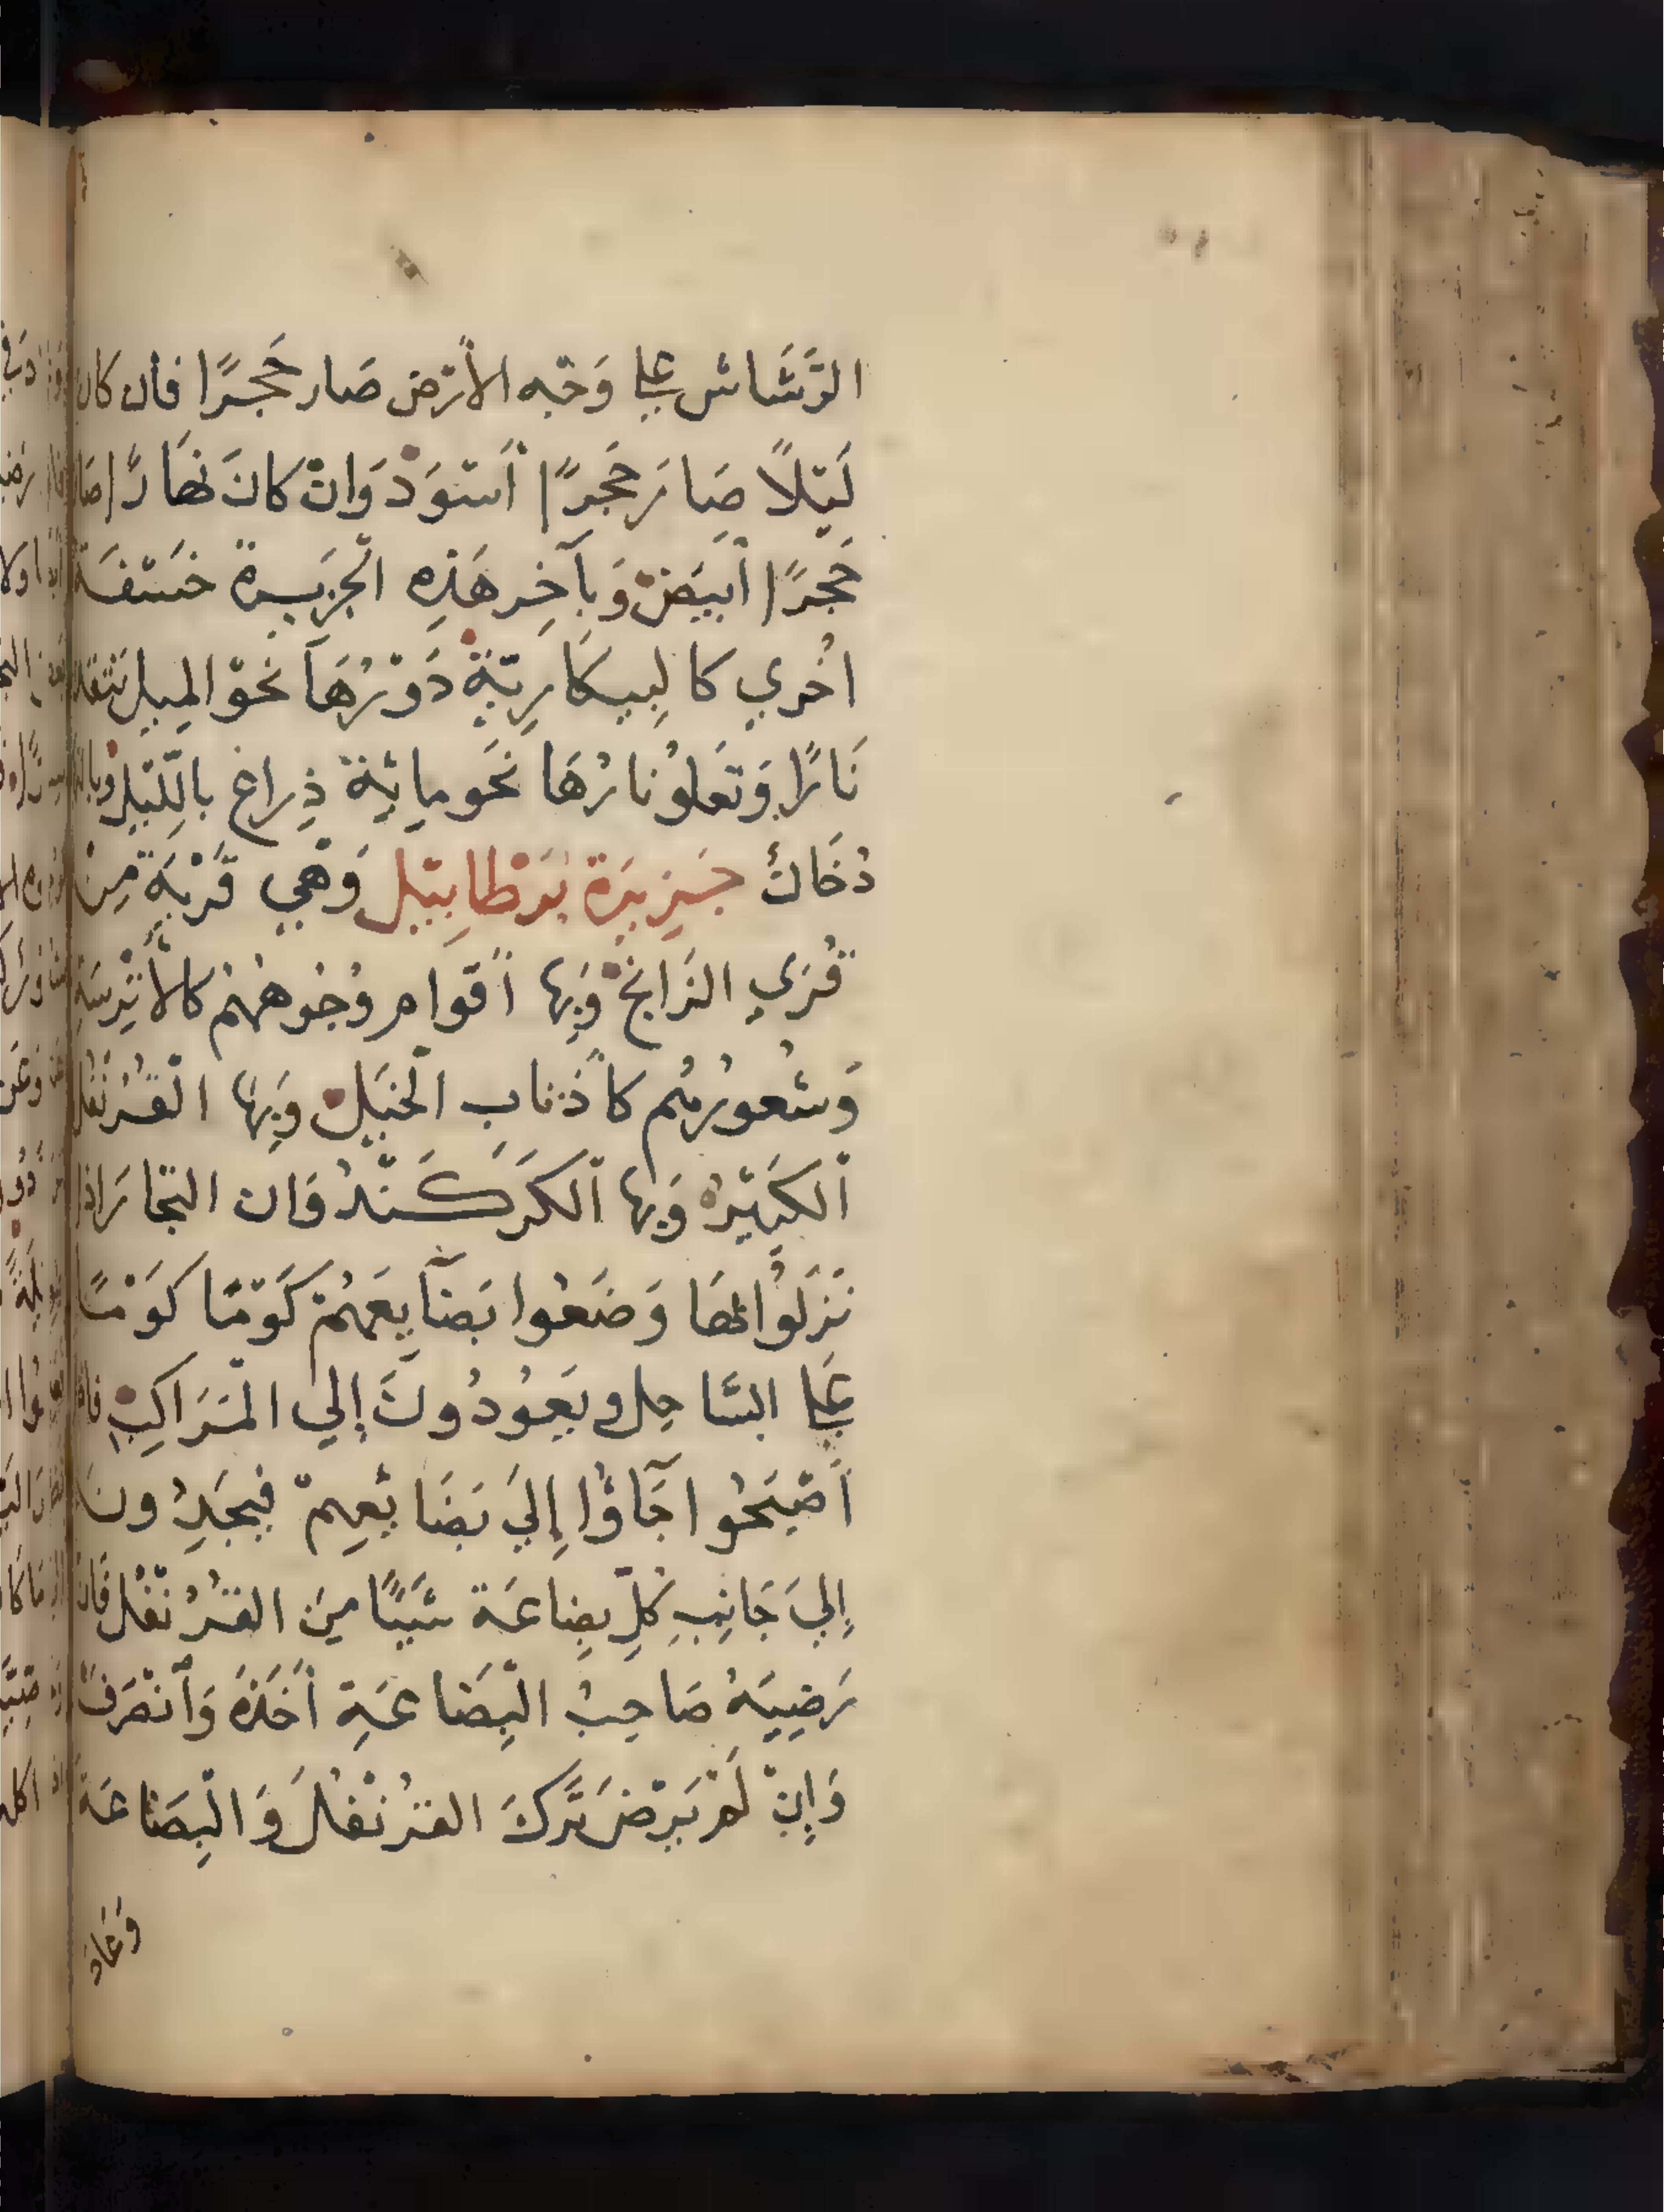 الرَّشَاش علي وَجْه الأرْض صَار حَجرًا فان كان
لَيْلاً صَارَ حَجرًا أسْوَد وَانْ كانَ نهَارًا صَار
حَجَرًا أبيَضْ وَبآخِر هَذِه الجَزيرة خسْفَة
اخُري كالبيكَارِيَّة دَوْرُهَا نحْو الميل تتقد
نَارًا وَتَعلوُ نارُهَا نَحَو مِائية ذِراع باللّيْل وبالنهار
دُخَان جَزيرَة بَرْطايِيْل وَهِي قَرْيَة مِنْ
قُرَي الزَانج وَبِها أقوام وُجُوههُمْ كالأتْرِسَةِ
وَشُعورُهُم كأَذناب الخيَل وَبِهَا القَرُنْفُل
الكَبِيْرُ وَبِها الكَرْكَنْدُ وَان التجَار اذا
نزَلوُا بهَا وَضَعُوا بَضَآيِعَهُمْ كَوْمًا كَوْمًا
عَلي السَّاحِل ويَعُودُونَ إلي المَرَاكِبِ فاذا
أصْبَحُوا جَآؤا إِليَ بَضَائعِهِمْ فيجَدِونَ
إِليَ جَانِبِ كُلِّ بِضِاعَة شَيًا مِنَ القَرُنْفُل فَان
رَضِيَهُ صَاحِبُ البِضَاعَةِ أخَذَهُ وَأنْصَرفَ
وَإِنْ لَمْ يَرْضَ تَركَ القَرُنْفُلَ وَالبِضَاعَة
وَعَاد